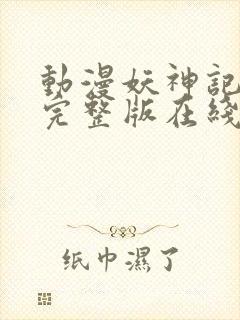 動漫妖神記
完整版在綫
纸巾濕了